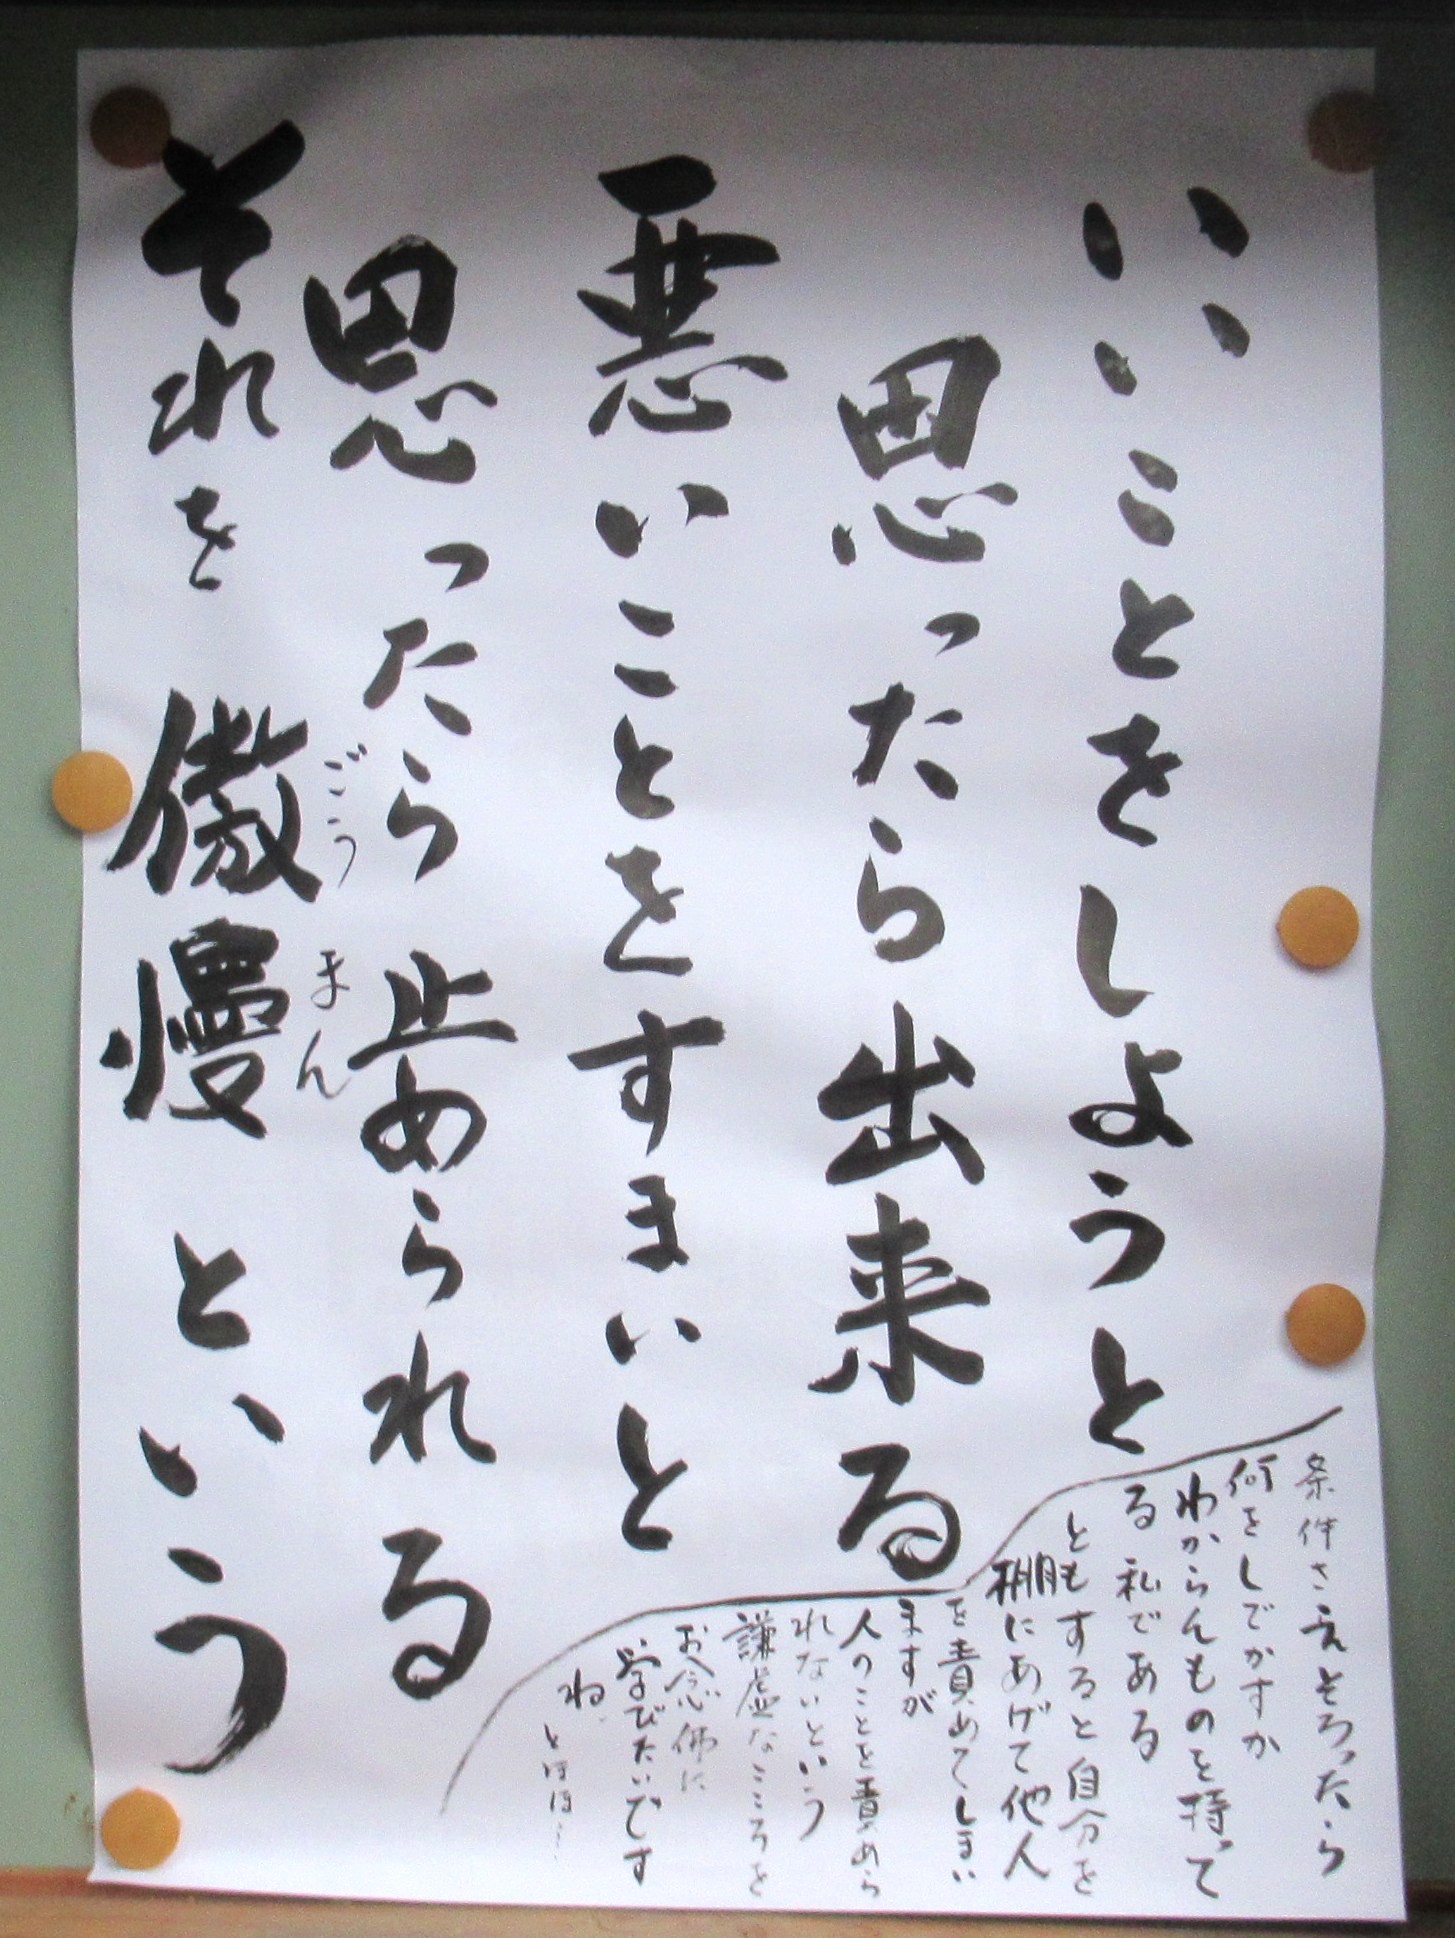 いいことをしようと
思ったら出来る
悪いことをすまいと
思ったら止められる
それを傲慢という
ごうまん
条件さえそろったら
何をしでかすか
わからんものを持って
る私である
ともすると自分を
棚にあげて他人
を責めてしまい
ますが
人のことを責めら
れないという
謙虚なこころを
お念佛に
学びたいです
ね、
とほほ…